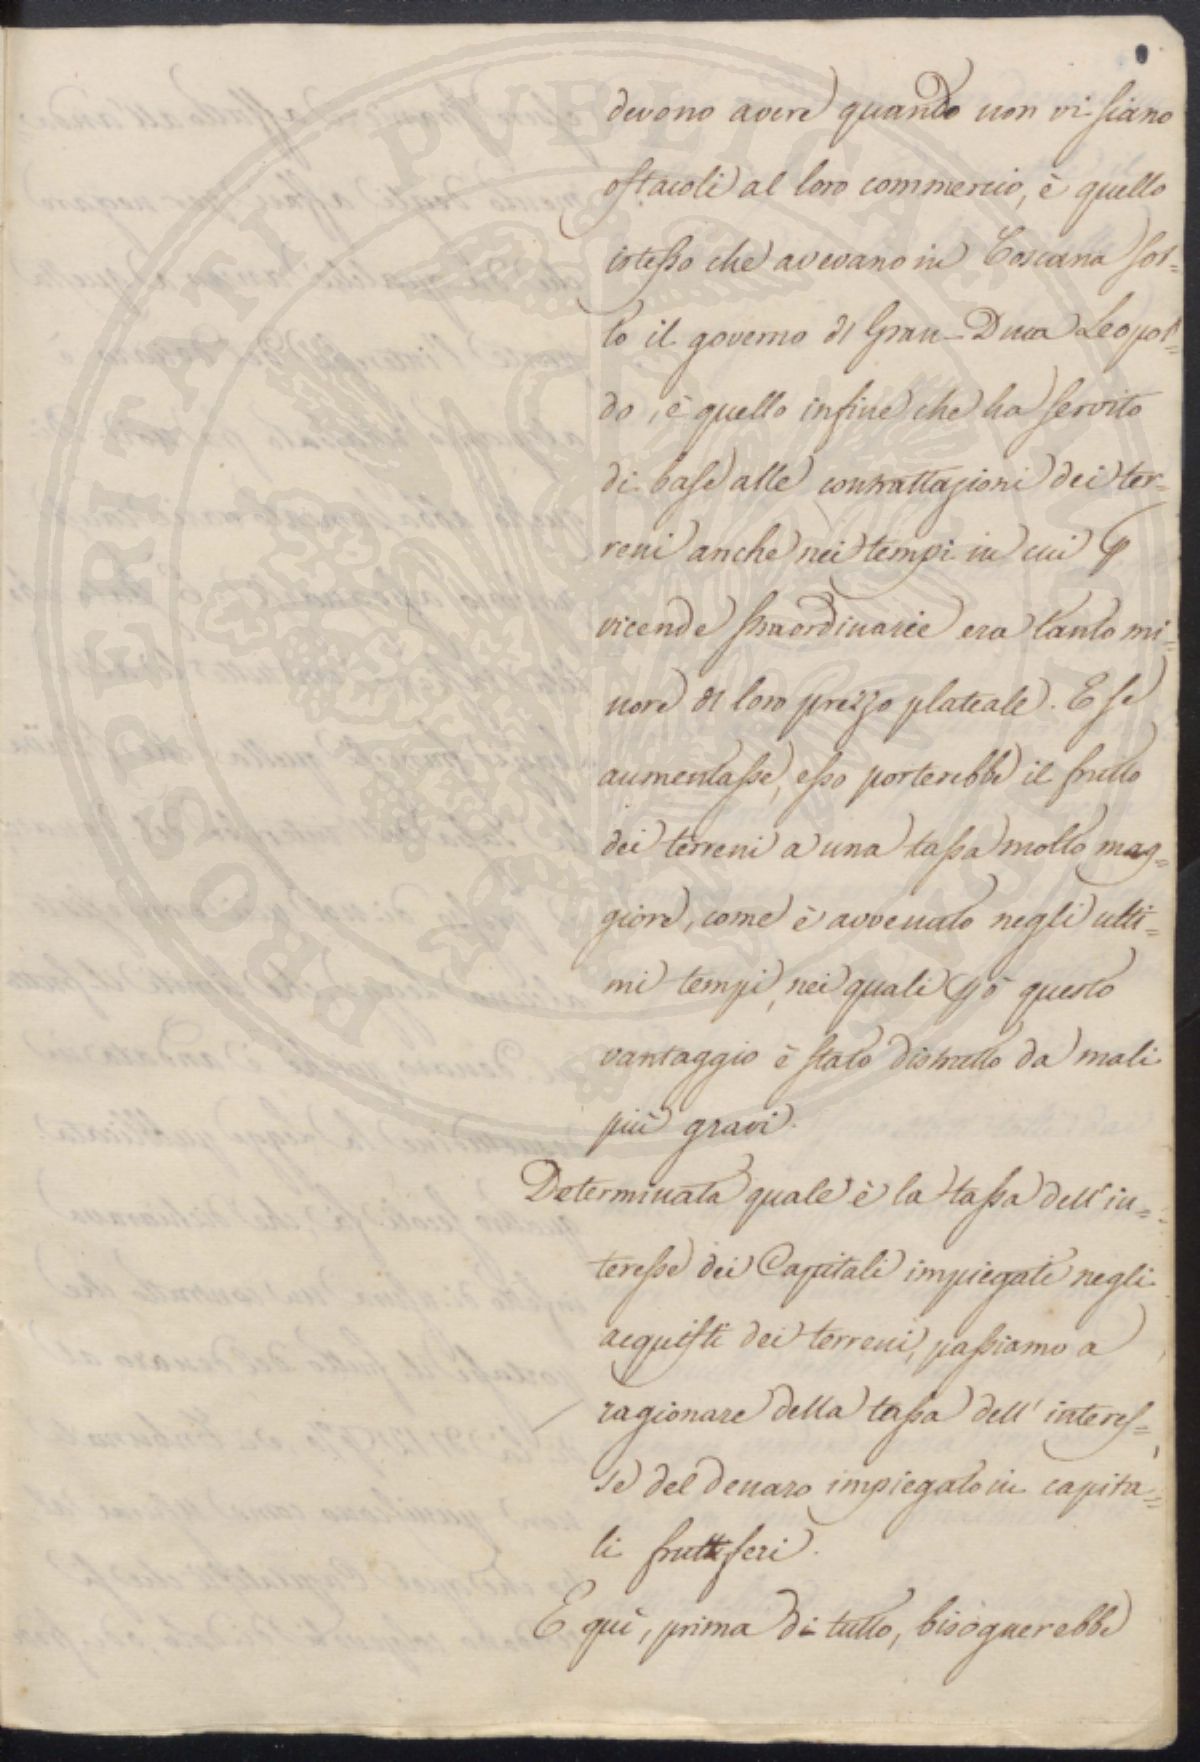 devono avere quando non vi siano
ostacoli al loro commercio, è quello
istesso che avevano in Toscana sot=
to il governo di Gran-Duca Leopol=
do, è quello infine che ha servito
di base alle contrattazioni dei ter=
reni anche nei tempi in cui p
vicende straordinarie era tanto mi=
nore il loro prezzo plateale. E se
aumentasse, esso porterebbe il frutto
dei terreni a una tassa molto mag=
giore, come è avvenuto negli ulti=
mi tempi, nei quali pò questo
vantaggio è stato distrutto da mali
più gravi.
Determinata quale è la tassa dell'in=
teresse dei Capitali impiegati negli
acquisti dei terreni, passiamo a
ragionare della tassa dell'interes=
se del denaro impiegato in capita=
li fruttiferi.
E quì, prima di tutto, bisognerebbe
PROSPERITATI PVBLICAE